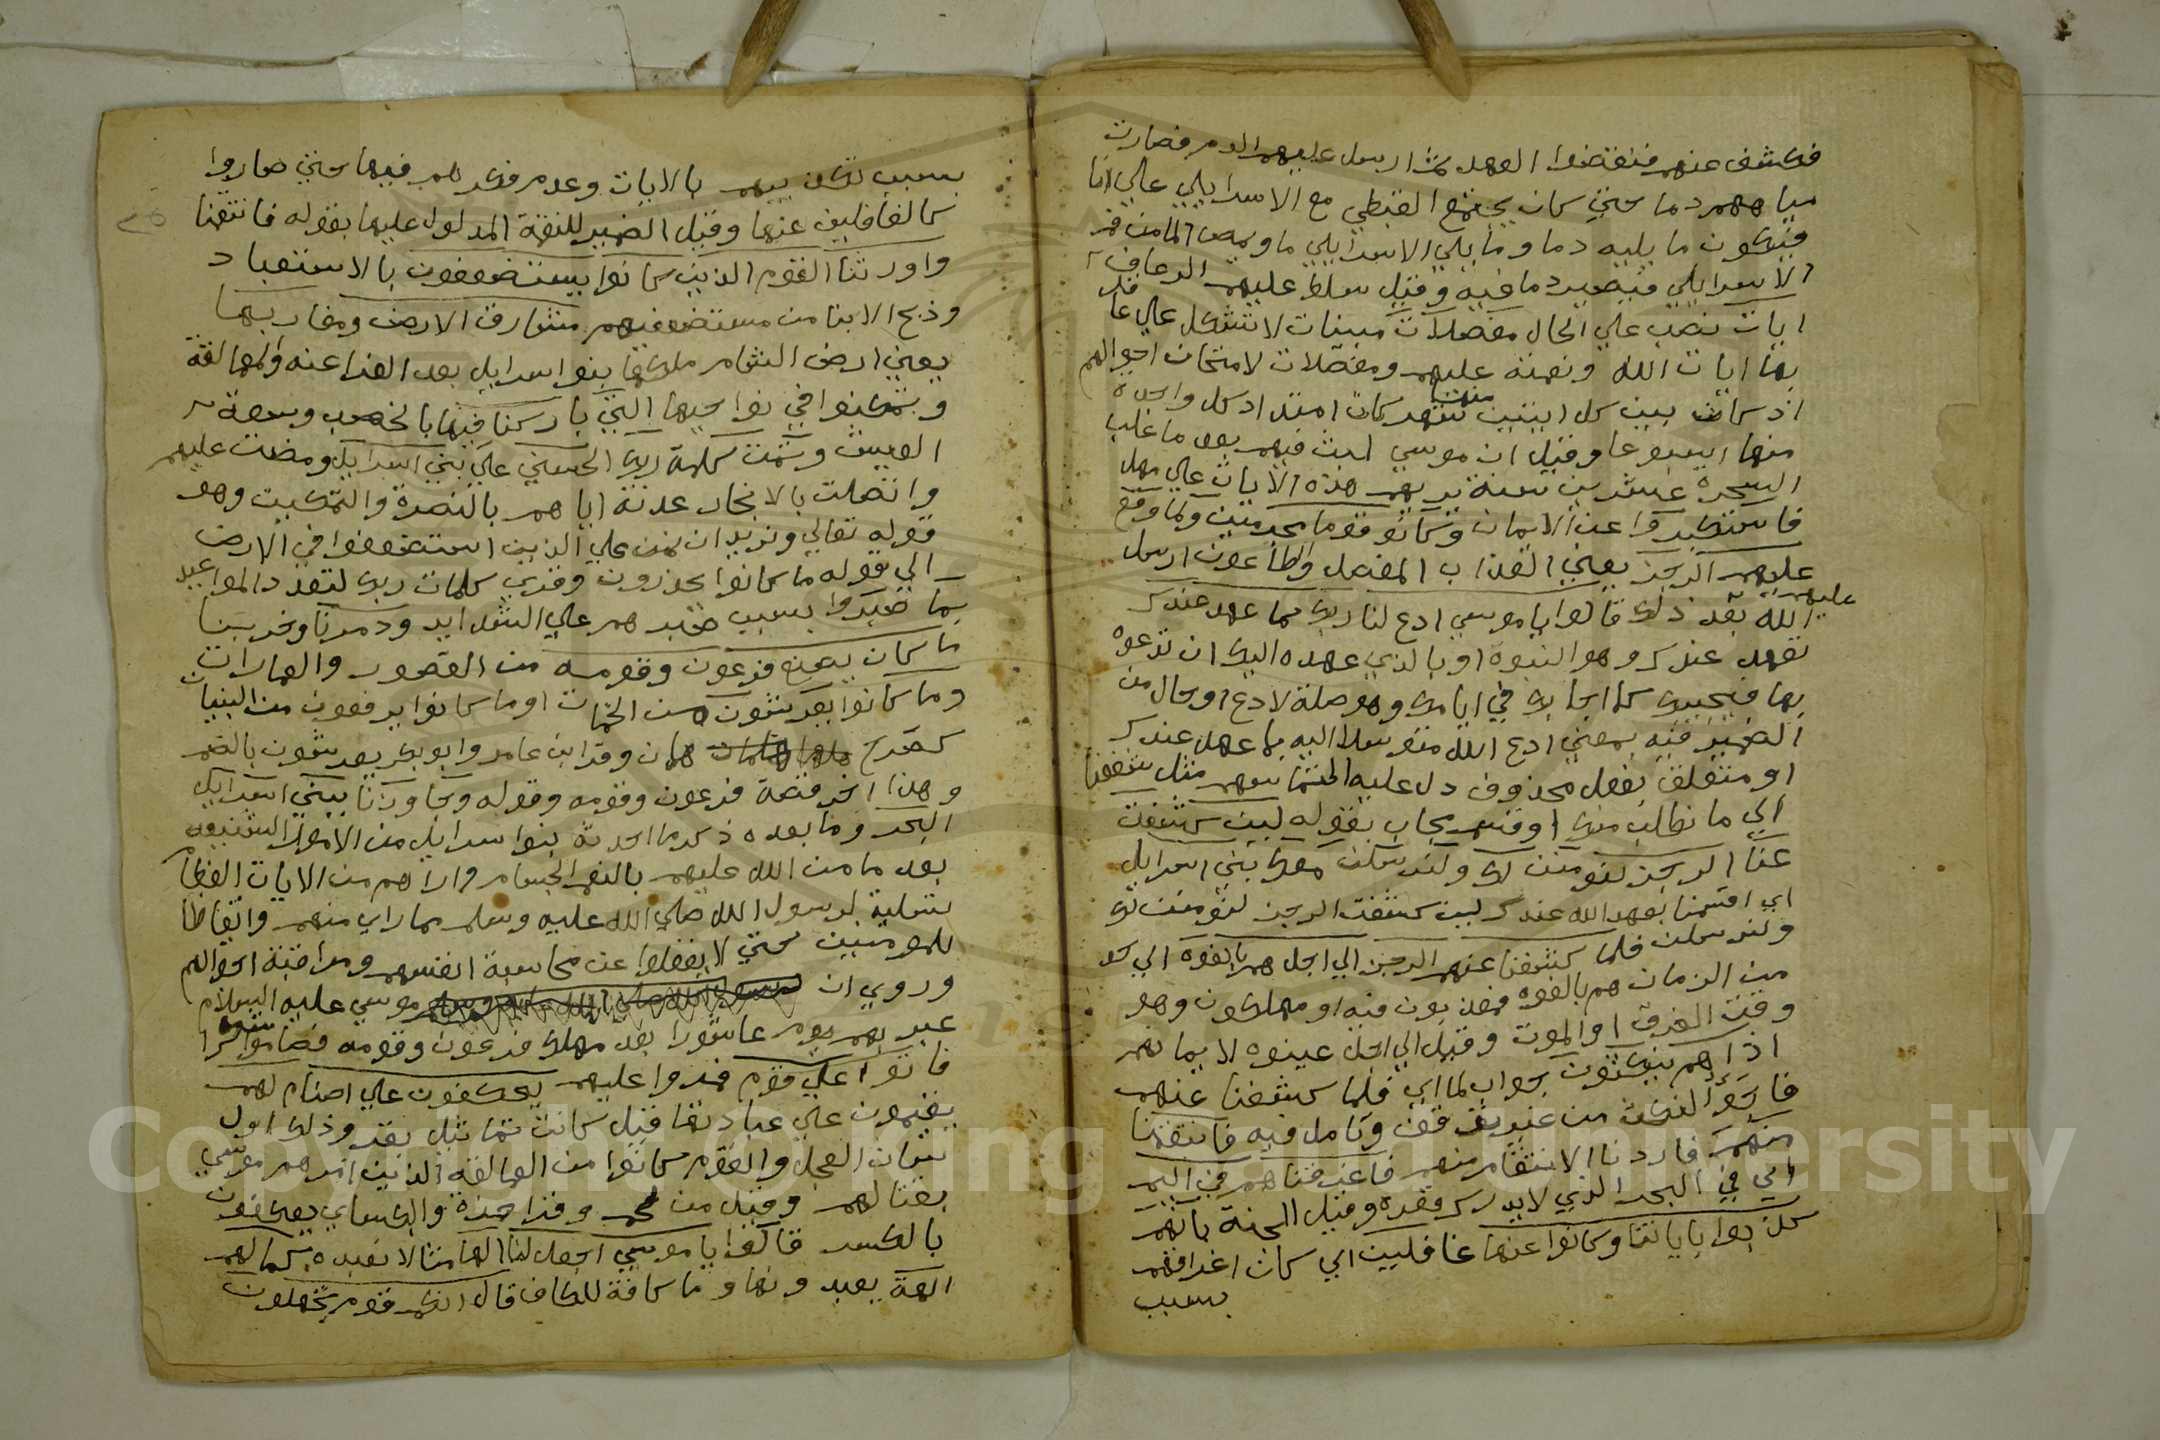 فكشف عنهم فنقضوا العهد ثم ارسل عليهم الدم فصارت
مياههم دما حتى كان يجتمع القبطي مع الاسرايلي علي انا
فيكون ما يليه دما وما يلي الاسرايلي ما ويمص الما من فم
الاسرايلي فيصير دما فيه وقيل سلط عليهم الرعاف
ايات نصب علي الحال مفصلات مبينات لا تشكل علي عاقل
انها ايات الله ونقمته عليهم ومفصلات لامتحان احوالهم
اذ كان بين كل ايتين منها شهر كان امتداد كل واحدة
منها اسبوعا وقيل ان موسي لبث فيهم بعد ما غلب
السحرة عشرين سنة يريهم هذه الايات علي مهل
فاستكبروا عن الايمان وكانو قوما مجرمين ولما وقع
عليهم الرجز يعني العذاب المفصل والطاعون ارسل
الله عليهم بعد ذلك قالوا يا موسي ادع لنا ربك بما عهد عندك
بعهده عندك وهو النبوة او بالذي عهده اليك ان تدعوه
بها فيجيبك كما اجابك في اياتك وهو صلة لادع او حال من
الضمير فيه بمعني ادع الله متوسلا اليه بما عهد عندك
او متعلق بفعل محذوف دل عليه التماسهم مثل شفعنا
الي ما نطلب منك او قسم مجاب بقوله لين كشفت
عنا الرجز لنومنن لك ولنرسلن معك بني اسرايل
اي اقسمنا بعهد الله عندك لين كشفت الرجز لنومنن لك
ولنرسلن فلما كشفنا عنهم الرجز الي اجل هم بالغوه الي حد
من الزمان هم بالغوه فمعذبون فيه او مهلكون وهو
وقت الغرق او الموت وقيل الي اجل عينوه لايمانهم
اذا هم ينكثون جواب لما اي فلما كشفنا عنهم
فاجؤا النكث من غير توقف وتامل فيه فانتقمنا
منهم فاردنا الانتقام منهم فاغرقناهم في اليم
اي في البحر الذي لا يدرك قعره وقيل لجته بانهم
كذبوا باياتنا وكانوا عنها غافلين اي كان اغراقهم
بسبب
بسبب تكذيبهم بالايات وعدم فكرهم فيها حتي صاروا
كالغافلين عنها وقيل الضمير للنقمة المدلول عليها بقوله فانتقمنا
واورثنا القوم الذين كانوا يستضعفون بالاستعباد
وذبح الابنا من مستضعفيهم مشارق الارض ومغاربها
يعني ارض الشام ملكها بنوا اسرايل بعد الفراعنه والعمالقة
وتمكنوا في نواحيها التي باركنا فيها بالخصب وسعة
العيش وتمت كلمة ربك الحسني علي بني اسرايل ومضت عليهم
واتصلت بالانجاز عدته اياهم بالنصرة والتمكين وهو
قوله تعالي ونريد ان نمن علي الذين استضعفوا في الارض
الي قوله ما كانوا يحذرون وقري كلمات ربك لتعدد المواعيد
بما صبروا بسبب صبرهم علي الشدايد ودمرنا وخربنا
ما كان يصنع فرعون وقومه من القصور والعمارات
وما كانوا يعرشون من الجنات او ما كانوا يرفعون من البنيان
كصرح هامان وقرا ابن عامر وابو بكر يعرشون بالضم
وهذا اخر قصة فرعون وقومه وقوله وجاوزنا ببني اسرايل
البحر وما بعده ذكر ما احدثه بنوا اسرايل من الامور الشنيعه
بعد ما من الله عليهم بالنعم الجسام واراهم من الايات العظام
تسلية لرسول الله صلي الله عليه وسلم مما راي منهم وايقاظا
للمومنين حتي لا يغفلوا عن محاسبة انفسهم ومراقبة احوالهم
وروي ان موسي عليه السلام
عبر بهم يوم عاشورا بعد مهلك فرعون وقومه فصاموه شكرا
فاتوا علي قوم فمروا عليهم يعكفون علي اصنام لهم
يقيمون علي عبادتها قيل كانت تماثيل بقر وذلك اول
شان العجل والقوم كانوا من العمالقة الذين امر موسي
بقتالهم وقيل من لخم وقرا حمزة والكساي يعكفون
بالكسر قالوا يا موسي اجعل لنا الها مثالا نعبده كما لهم
الهة يعبدونها وما كافة للكاف قال انكم قوم تجهلون